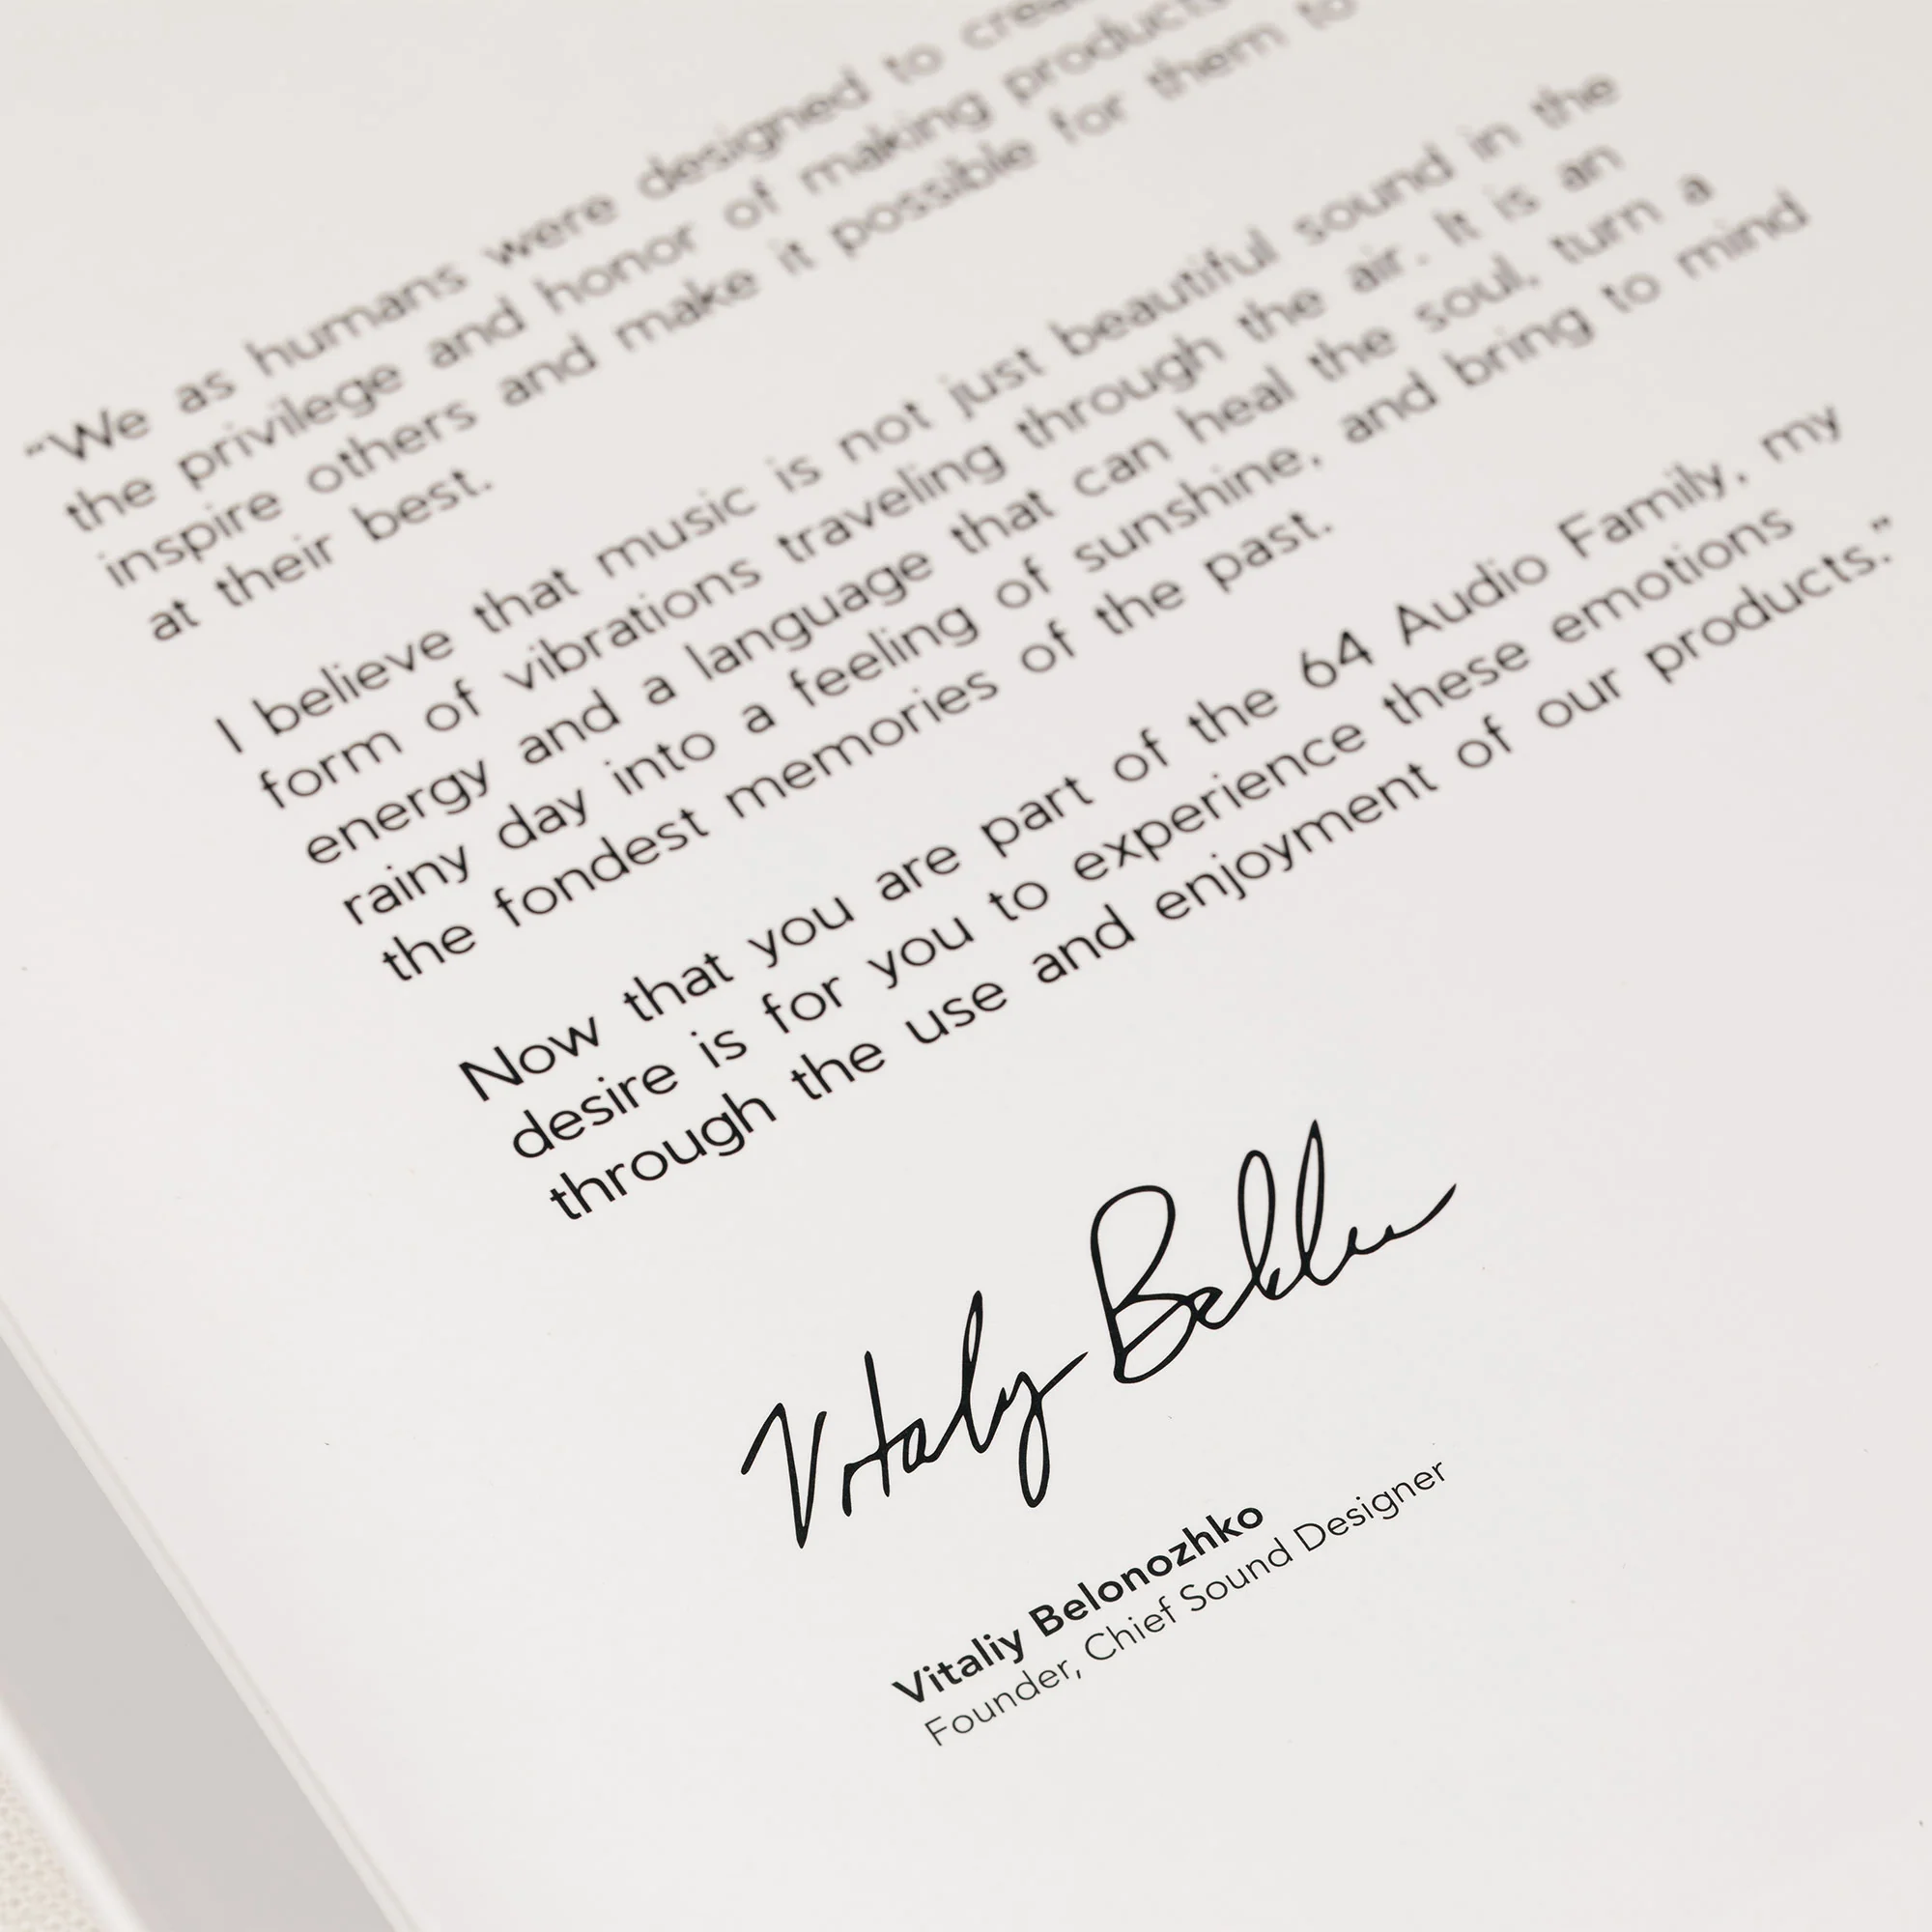 "We as humans were designed to
the privilege and honor of making
inspire others and make it possible for them to
at their best.
I believe that music is not just beautiful sound in the
form of vibrations traveling through the air. It is an
energy and a language that can heal the soul, turn a
rainy day into a feeling of sunshine, and bring to mind
the fondest memories of the past.
Now that you are part of the 64 Audio Family, my
desire is for you to experience these emotions
through the use and enjoyment of our products."
Vitaliy Belonozhko
Founder, Chief Sound Designer